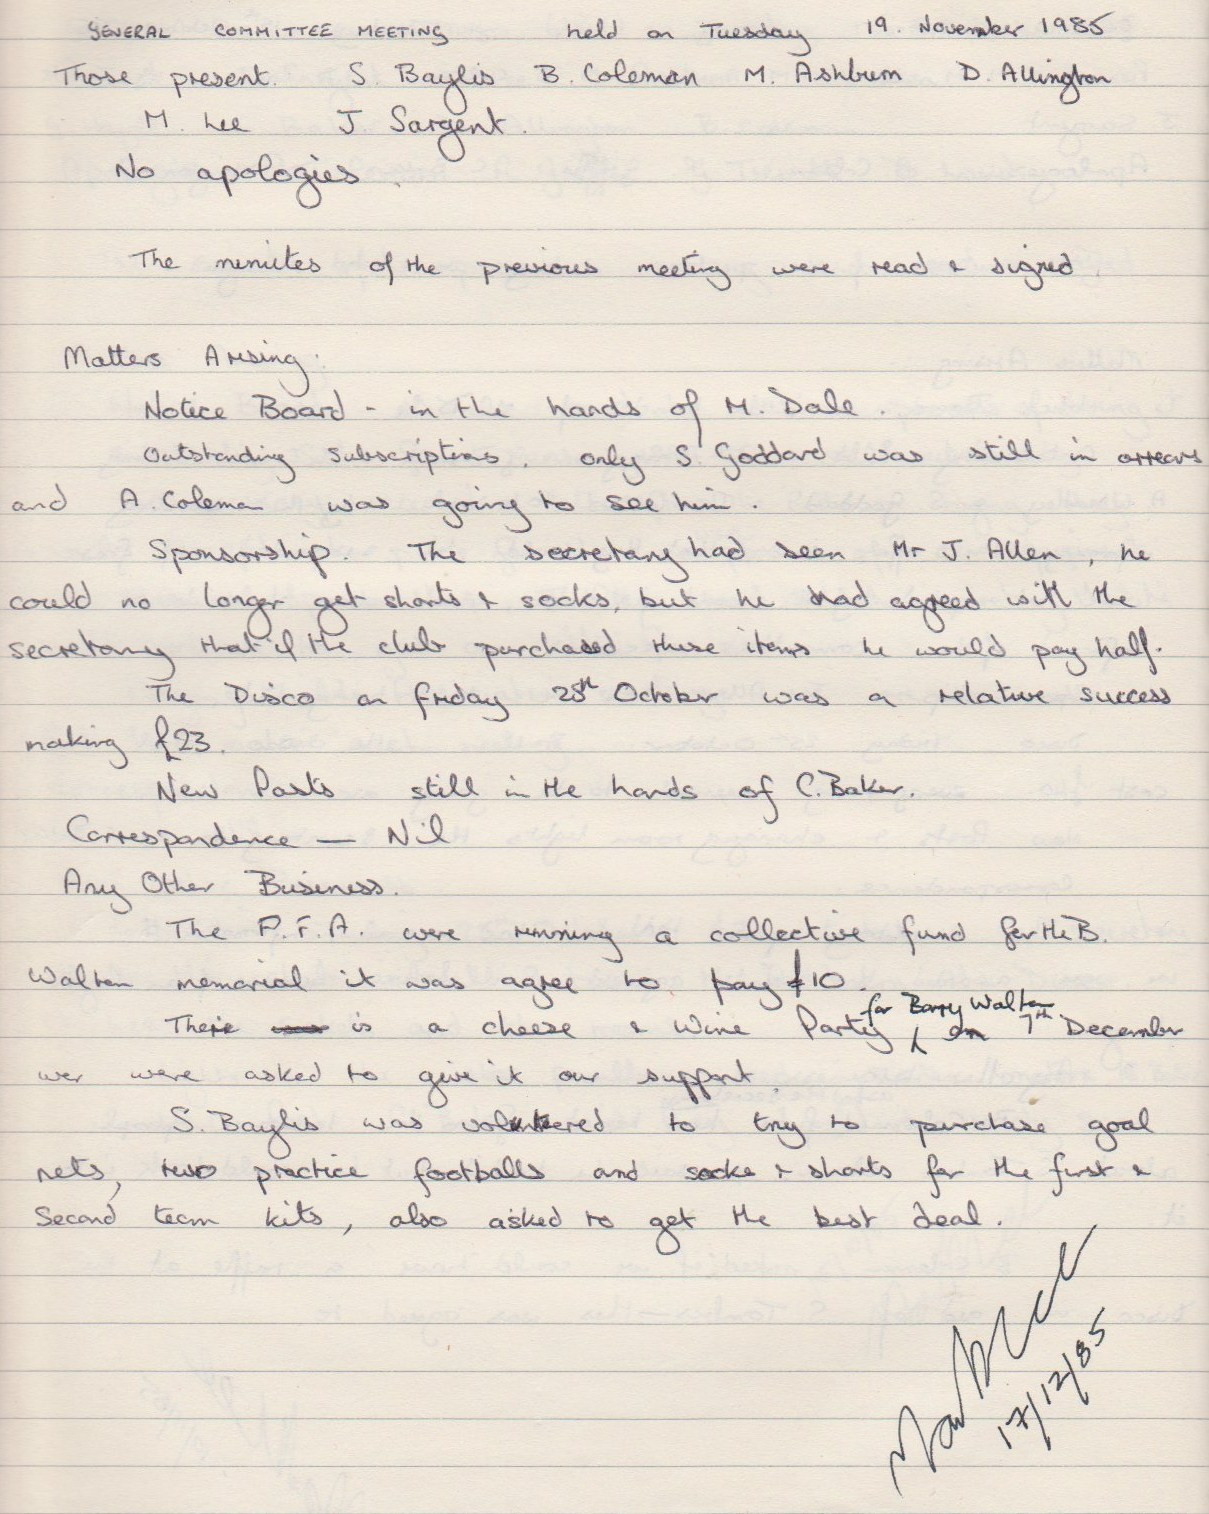 GENERAL COMMITTEE MEETING held on Tuesday 19. November 1985
Those present. S. Baylis B. Coleman M. Ashburn D. Allington
M. Lee J. Sargent.
No apologies.
The minutes of the previous meeting were read & signed.
Matters Arising:
Notice Board - in the hands of M. Dale.
Outstanding subscriptions. only S. Goddard was still in arrears
and A. Coleman was going to see him.
Sponsorship. The secretary had seen Mr J. Allen, he
could no longer get shorts & socks, but he had agreed with the
secretary that if the club purchased these items he would pay half.
The Disco on Friday 25th October was a relative success
making £23.
New Posts still in the hands of C. Baker.
Correspondence — Nil
Any Other Business.
The P.F.A. were running a collective fund for the B.
Walton memorial it was agree to pay £10.
for Barry Walton
There is a cheese & wine Party on 7th December
wer were asked to give it our support.
S. Baylis was volunteered to try to purchase goal
nets, two practice footballs and socks & shorts for the first &
second team kits, also asked to get the best deal.
17/12/85